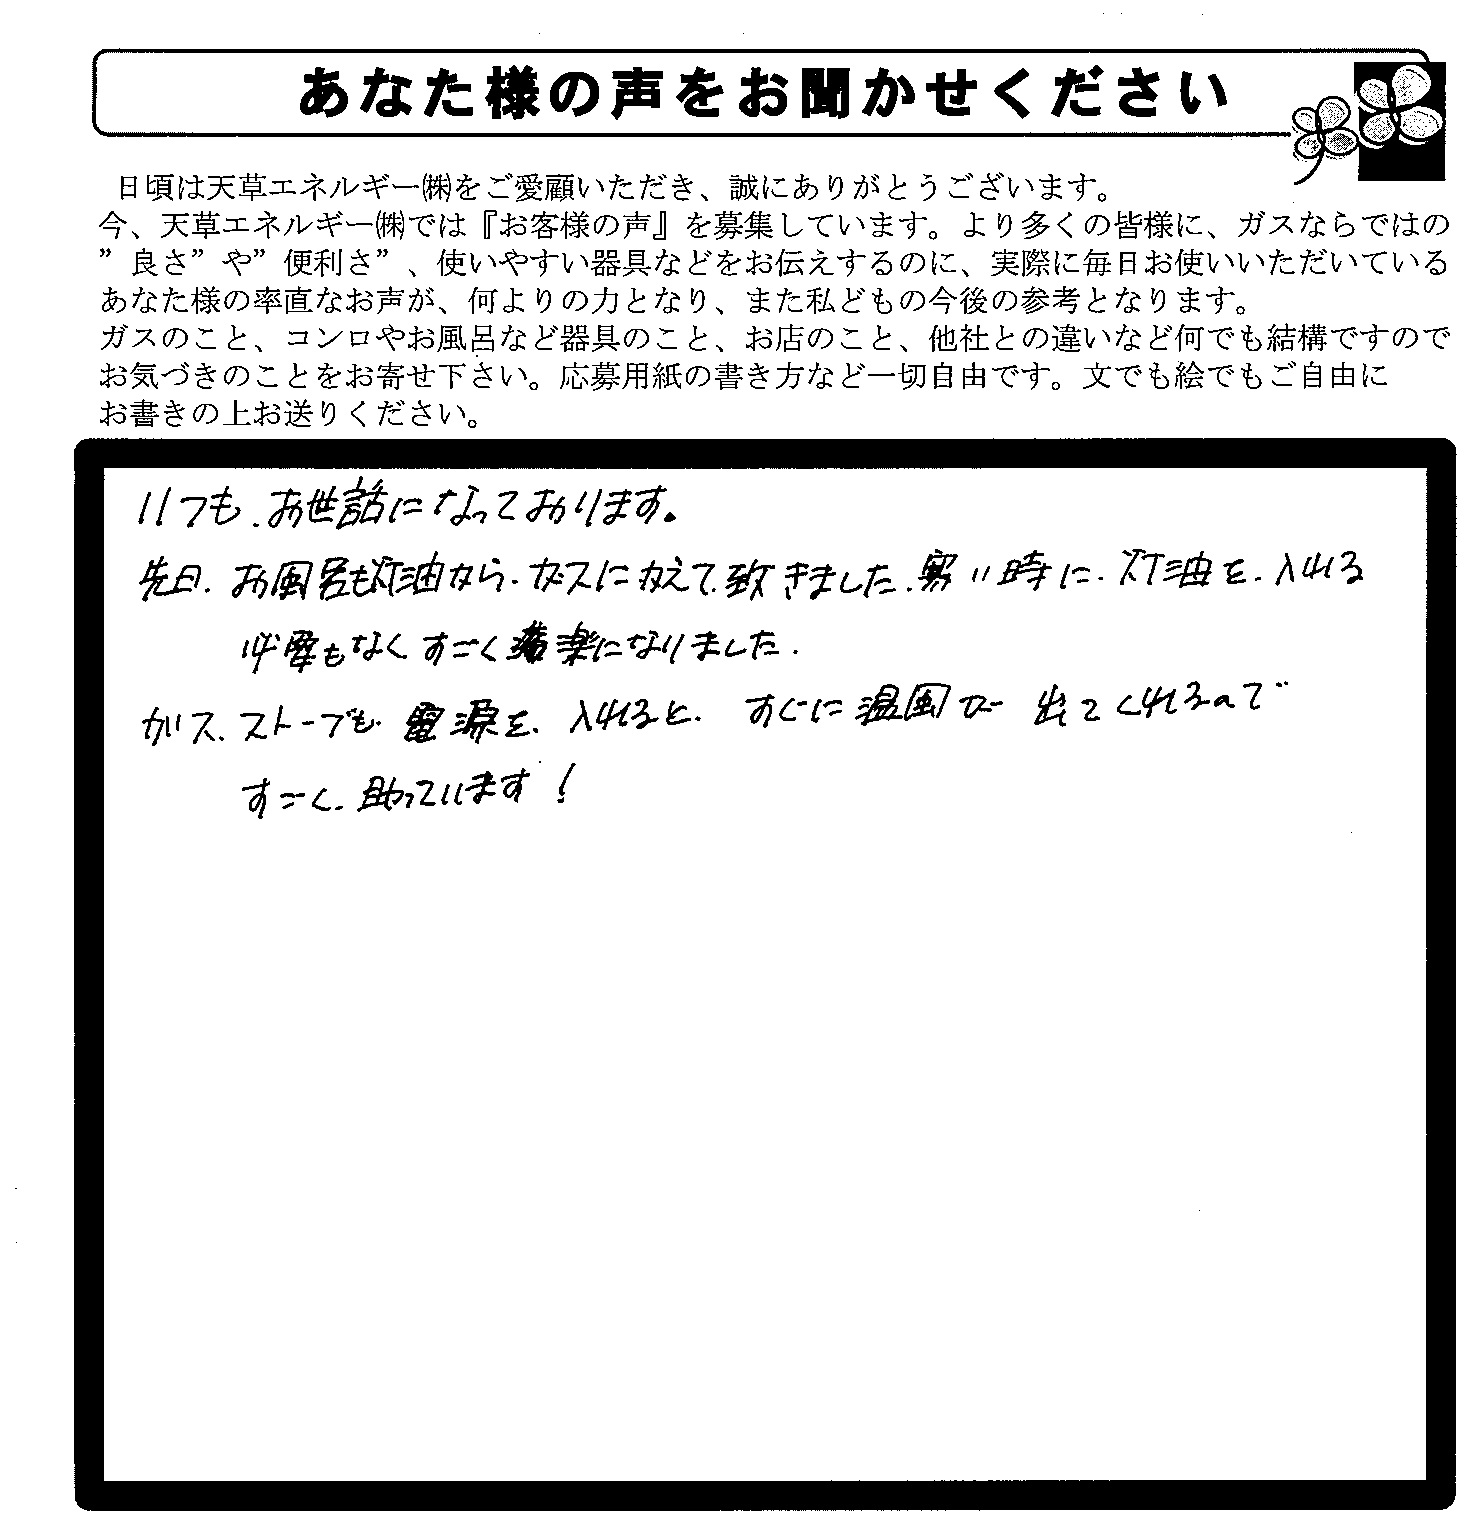 あなた様の声をお聞かせください
日頃は天草エネルギー㈱をご愛顧いただき、誠にありがとうございます。
今、天草エネルギー㈱では『お客様の声』を募集しています。より多くの皆様に、ガスならではの
”良さ”や”便利さ”、使いやすい器具などをお伝えするのに、実際に毎日お使いいただいている
あなた様の率直なお声が、何よりの力となり、また私どもの今後の参考となります。
ガスのこと、コンロやお風呂など器具のこと、お店のこと、他社との違いなど何でも結構ですので
お気づきのことをお寄せ下さい。応募用紙の書き方など一切自由です。文でも絵でもご自由に
お書きの上お送りください。
いつも、お世話になっております。
先日、お風呂も灯油から、ガスにかえて致きました、寒い時に、灯油を、入れる
必要もなくすごく楽になりました、
ガス、ストーブも電源を、入れると、すぐに温風が出てくれるので
すごく、助っています！